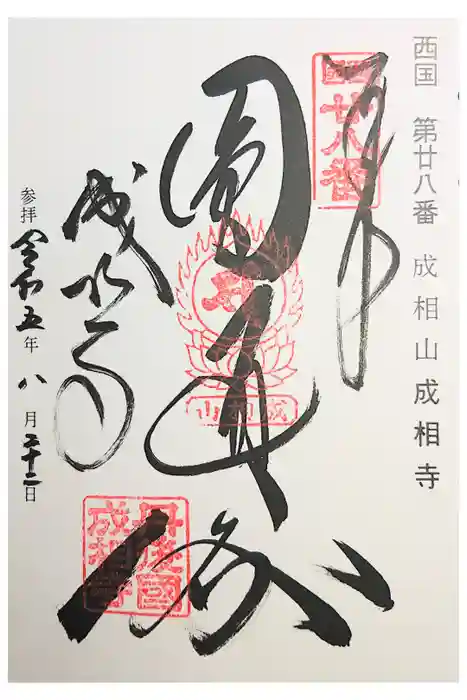 西国 第廿八番 成相山成相寺
西國
廿八番
圓
山相成
成相寺
丹後國
成相寺
参拝 令和五年八月二十二日